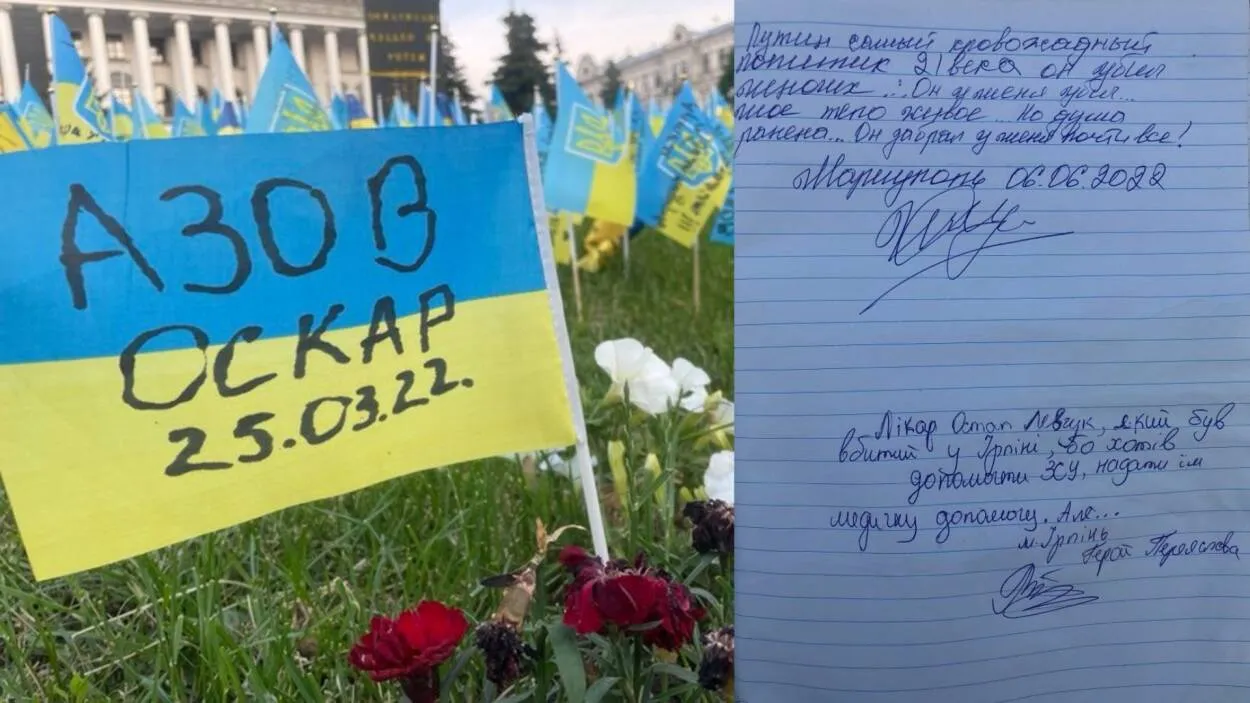 АЗОВ
ОСКАР
25.03.22.
Путин самый кровожадный
политик 21 века он убил
многих... Он у меня убил...
мое тело живое... Но душа
ранена... Он забрал у меня почти все!
Мариуполь 06.06.2022
Лікар Остап Левчук, який був
вбитий у Ірпіні, бо хотів
допомогти ЗСУ, надати їм
медичну допомогу. Але...
м. Ірпінь
Герой